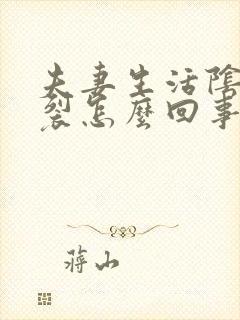 夫妻生活陰
裂怎麼回事
蔣山